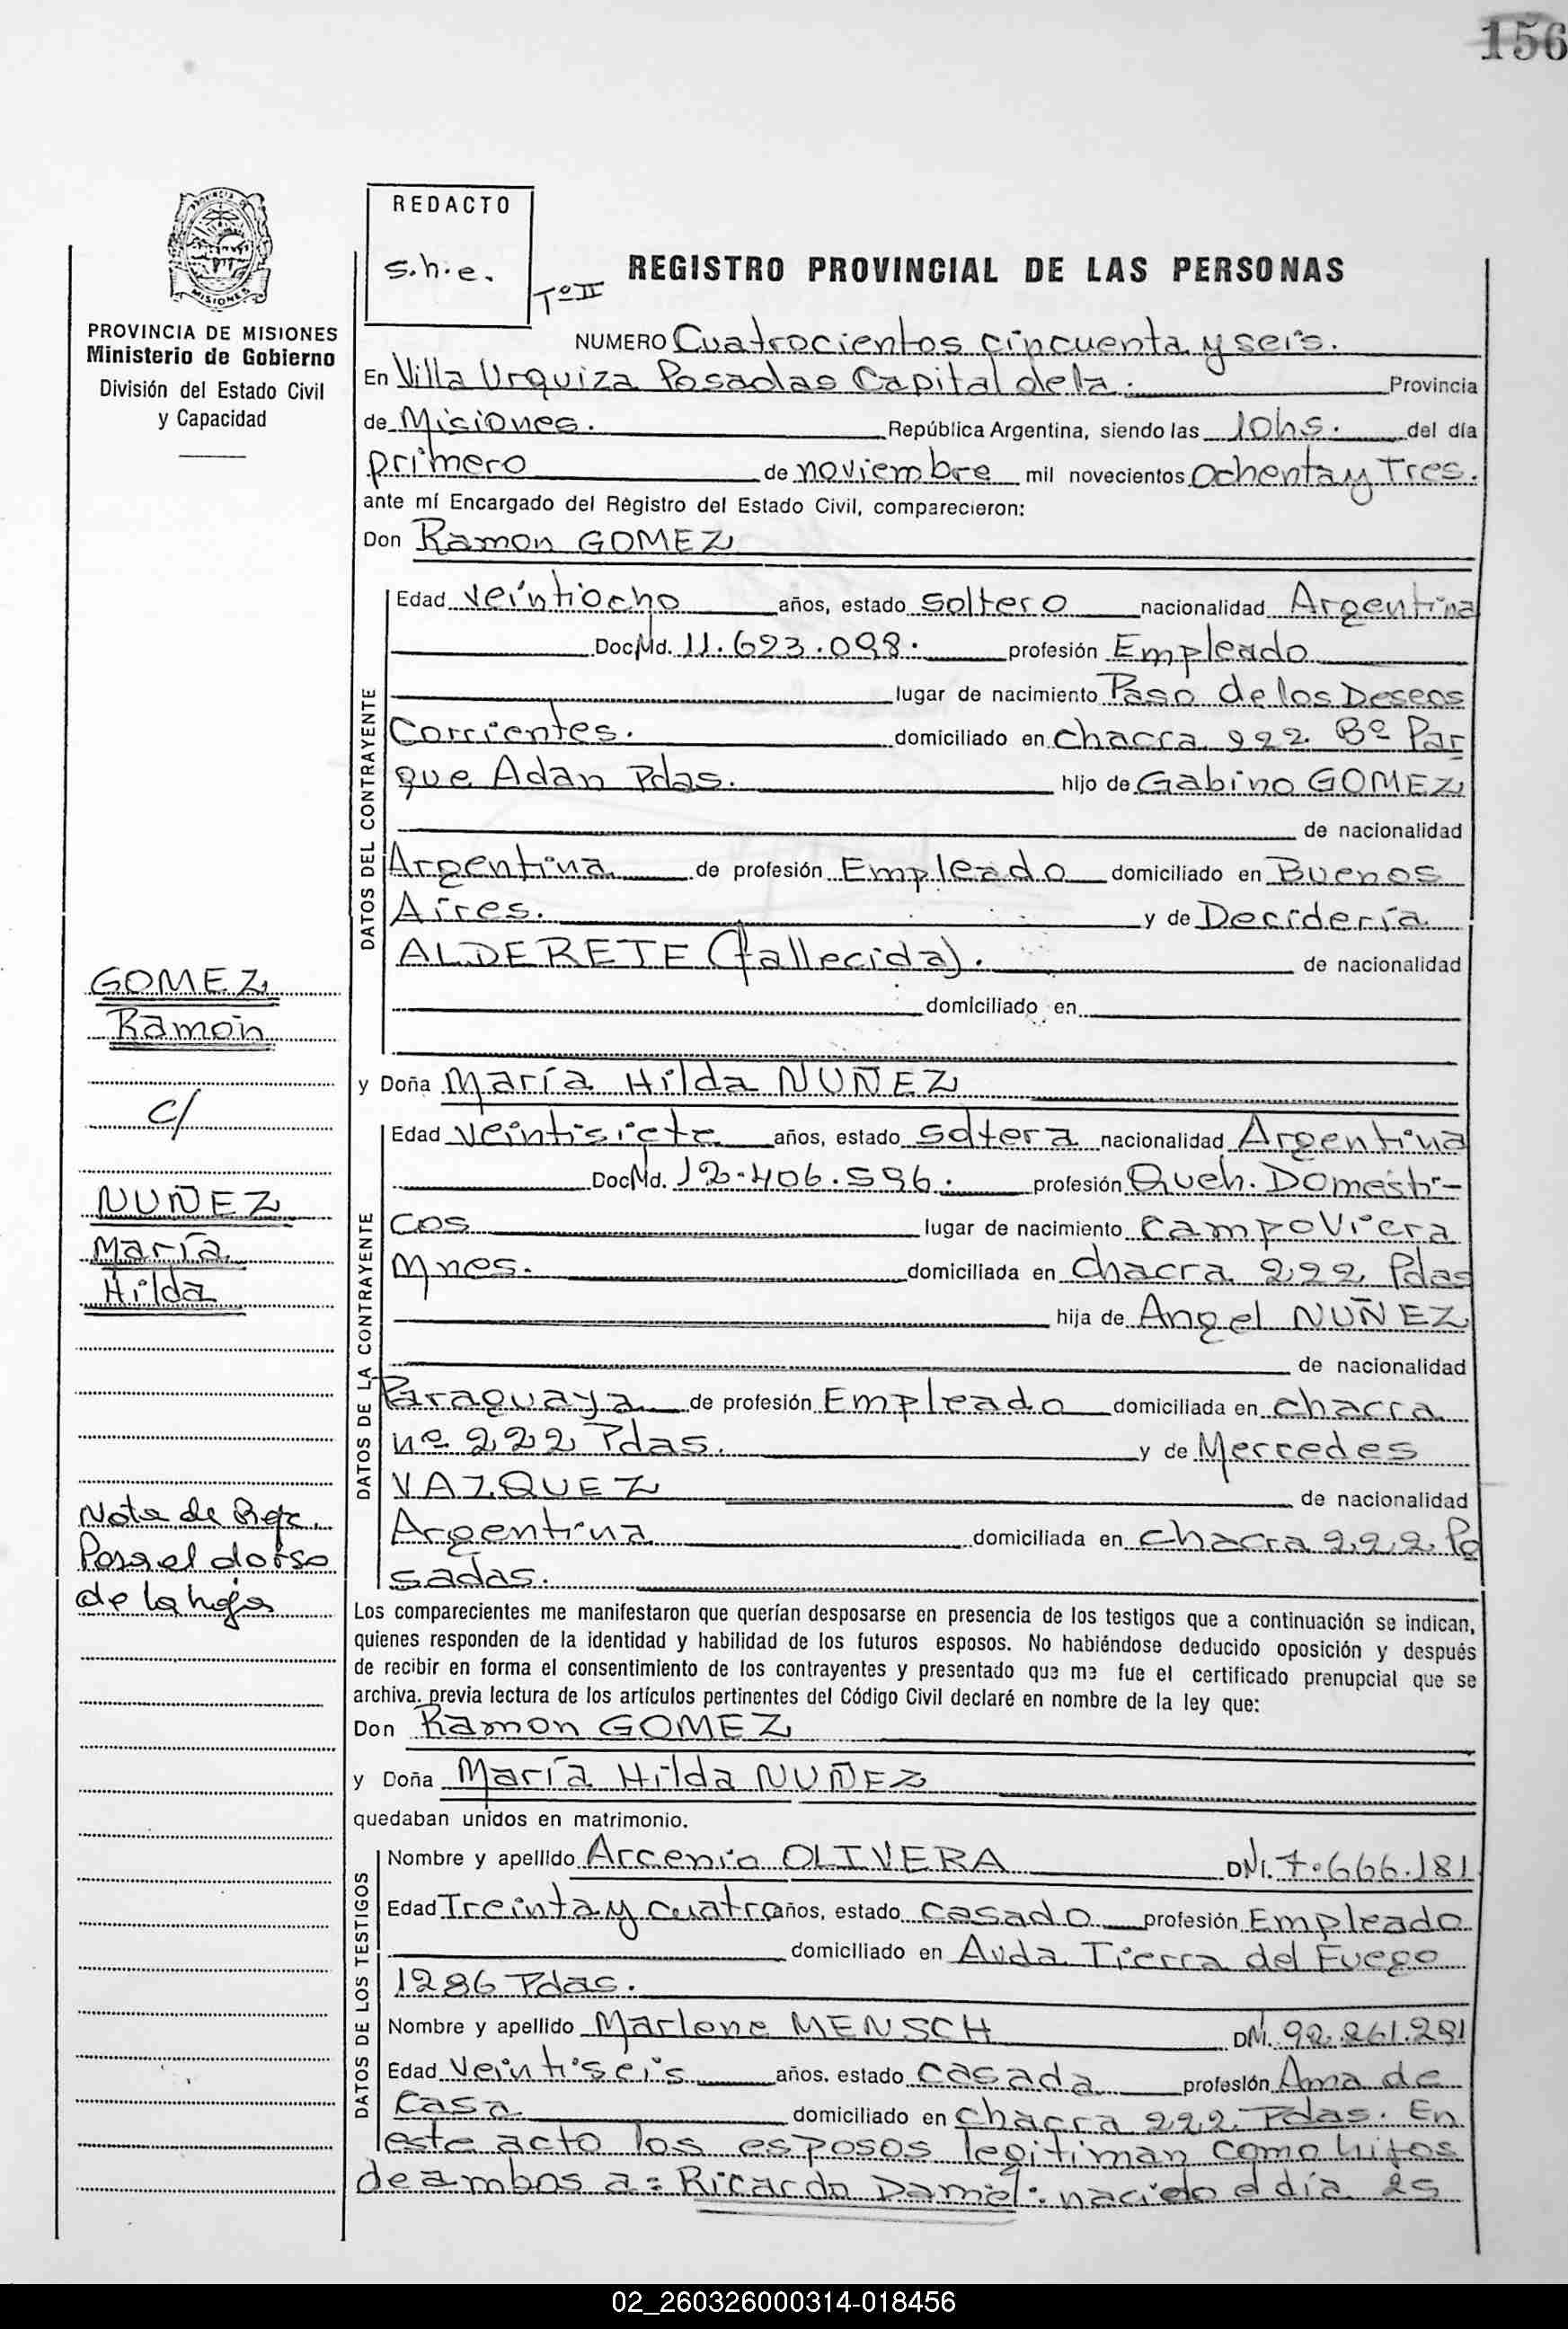 156
REDACTO
s.h.e.
Tº II
REGISTRO PROVINCIAL DE LAS PERSONAS
MISIONES
PROVINCIA DE MISIONES
Ministerio de Gobierno
División del Estado Civil
y Capacidad
NUMERO Cuatrocientos cincuenta y seis.
En Villa Urquiza Posadas Capital de la. Provincia
de Misiones. República Argentina, siendo las 10hs. del día
primero de noviembre mil novecientos ochenta y Tres.
ante mí Encargado del Registro del Estado Civil, comparecieron:
Don Ramon GOMEZ
DATOS DEL CONTRAYENTE
Edad veintiocho años, estado soltero nacionalidad Argentina
Doc Md. 11.623.098. profesión Empleado
lugar de nacimiento Paso de los Deseos
Corrientes. domiciliado en chacra 222 Bº Par
que Adan Pdas. hijo de Gabino GOMEZ
de nacionalidad
Argentina de profesión Empleado domiciliado en Buenos
Aires. y de Decideria
ALDERETE (fallecida). de nacionalidad
domiciliado en
y Doña María Hilda NUÑEZ
DATOS DE LA CONTRAYENTE
Edad veintisiete años, estado soltera nacionalidad Argentina
Doc Md. 12.406.596. profesión Queh. Domésti-
cos lugar de nacimiento Campo Viera
Mnes. domiciliada en Chacra 222 Pdas
hija de Angel NUÑEZ
de nacionalidad
Paraguaya de profesión Empleado domiciliada en chacra
nº 222 Pdas. y de Mercedes
VAZQUEZ de nacionalidad
Argentina domiciliada en chacra 222 Po
sadas.
GOMEZ
Ramón
c/
NUÑEZ
María
Hilda
Nota de Refc.
Pasa el dorso
de la hoja
Los comparecientes me manifestaron que querían desposarse en presencia de los testigos que a continuación se indican,
quienes responden de la identidad y habilidad de los futuros esposos. No habiéndose deducido oposición y después
de recibir en forma el consentimiento de los contrayentes y presentado que me fue el certificado prenupcial que se
archiva, previa lectura de los artículos pertinentes del Código Civil declaré en nombre de la ley que:
Don Ramon GOMEZ
y Doña María Hilda NUÑEZ
quedaban unidos en matrimonio.
DATOS DE LOS TESTIGOS
Nombre y apellido Arcenio OLIVERA DNI. 7.666.181
Edad Treinta y cuatro años, estado casado profesión Empleado
domiciliado en Avda. Tierra del Fuego
1286 Pdas.
Nombre y apellido Marlene MENSCH DNI. 92.261.281
Edad veintiseis años, estado casada profesión Ama de
casa domiciliado en chacra 222 Pdas. En
este acto los esposos legitiman como hijos
de ambos a: Ricardo Daniel: nacido el día 25
02_260326000314-018456